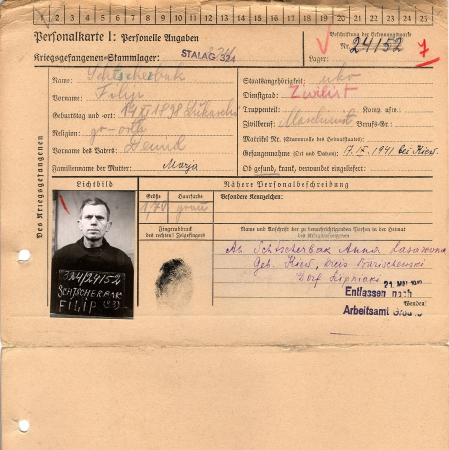 1 2 3 4 5 6 7 8 9 10 11 12 13 14 15 16 17 18 19 20 21 22 23 24 25
Personalkarte I: Personelle Angaben
Beschriftung der Erkennungsmarke
Nr. 24152 7
Kriegsgefangenen-Stammlager: STALAG 324
Lager:
Des Kriegsgefangenen
Name: Schtscherbak
Vorname: Filip
Geburtstag und -ort:
Religion: gr-orth
Vorname des Vaters:
Familienname der Mutter: Marja
Staatsangehörigkeit: ukr
Dienstgrad: Zivilist
Truppenteil: Komp. usw.:
Zivilberuf: Maschinist Berufs-Gr.:
Matrikel Nr. (Stammrolle des Heimatstaates):
Gefangennahme (Ort und Datum): 17.IX.1941 bei Kiew
Ob gesund, krank, verwundet eingeliefert:
Lichtbild
Nähere Personalbeschreibung
Größe Haarfarbe
1,70 grau
Besondere Kennzeichen:
Fingerabdruck
des rechten! Zeigefingers
Name und Anschrift der zu benachrichtigenden Person in der Heimat
des Kriegsgefangenen
Schtscherbak Anna
Geb. Kiew, Kreis
Dorf
324/24152
SCHTSCHERBAK
FILIP
Entlassen nach
Wenden!
Arbeitsamt